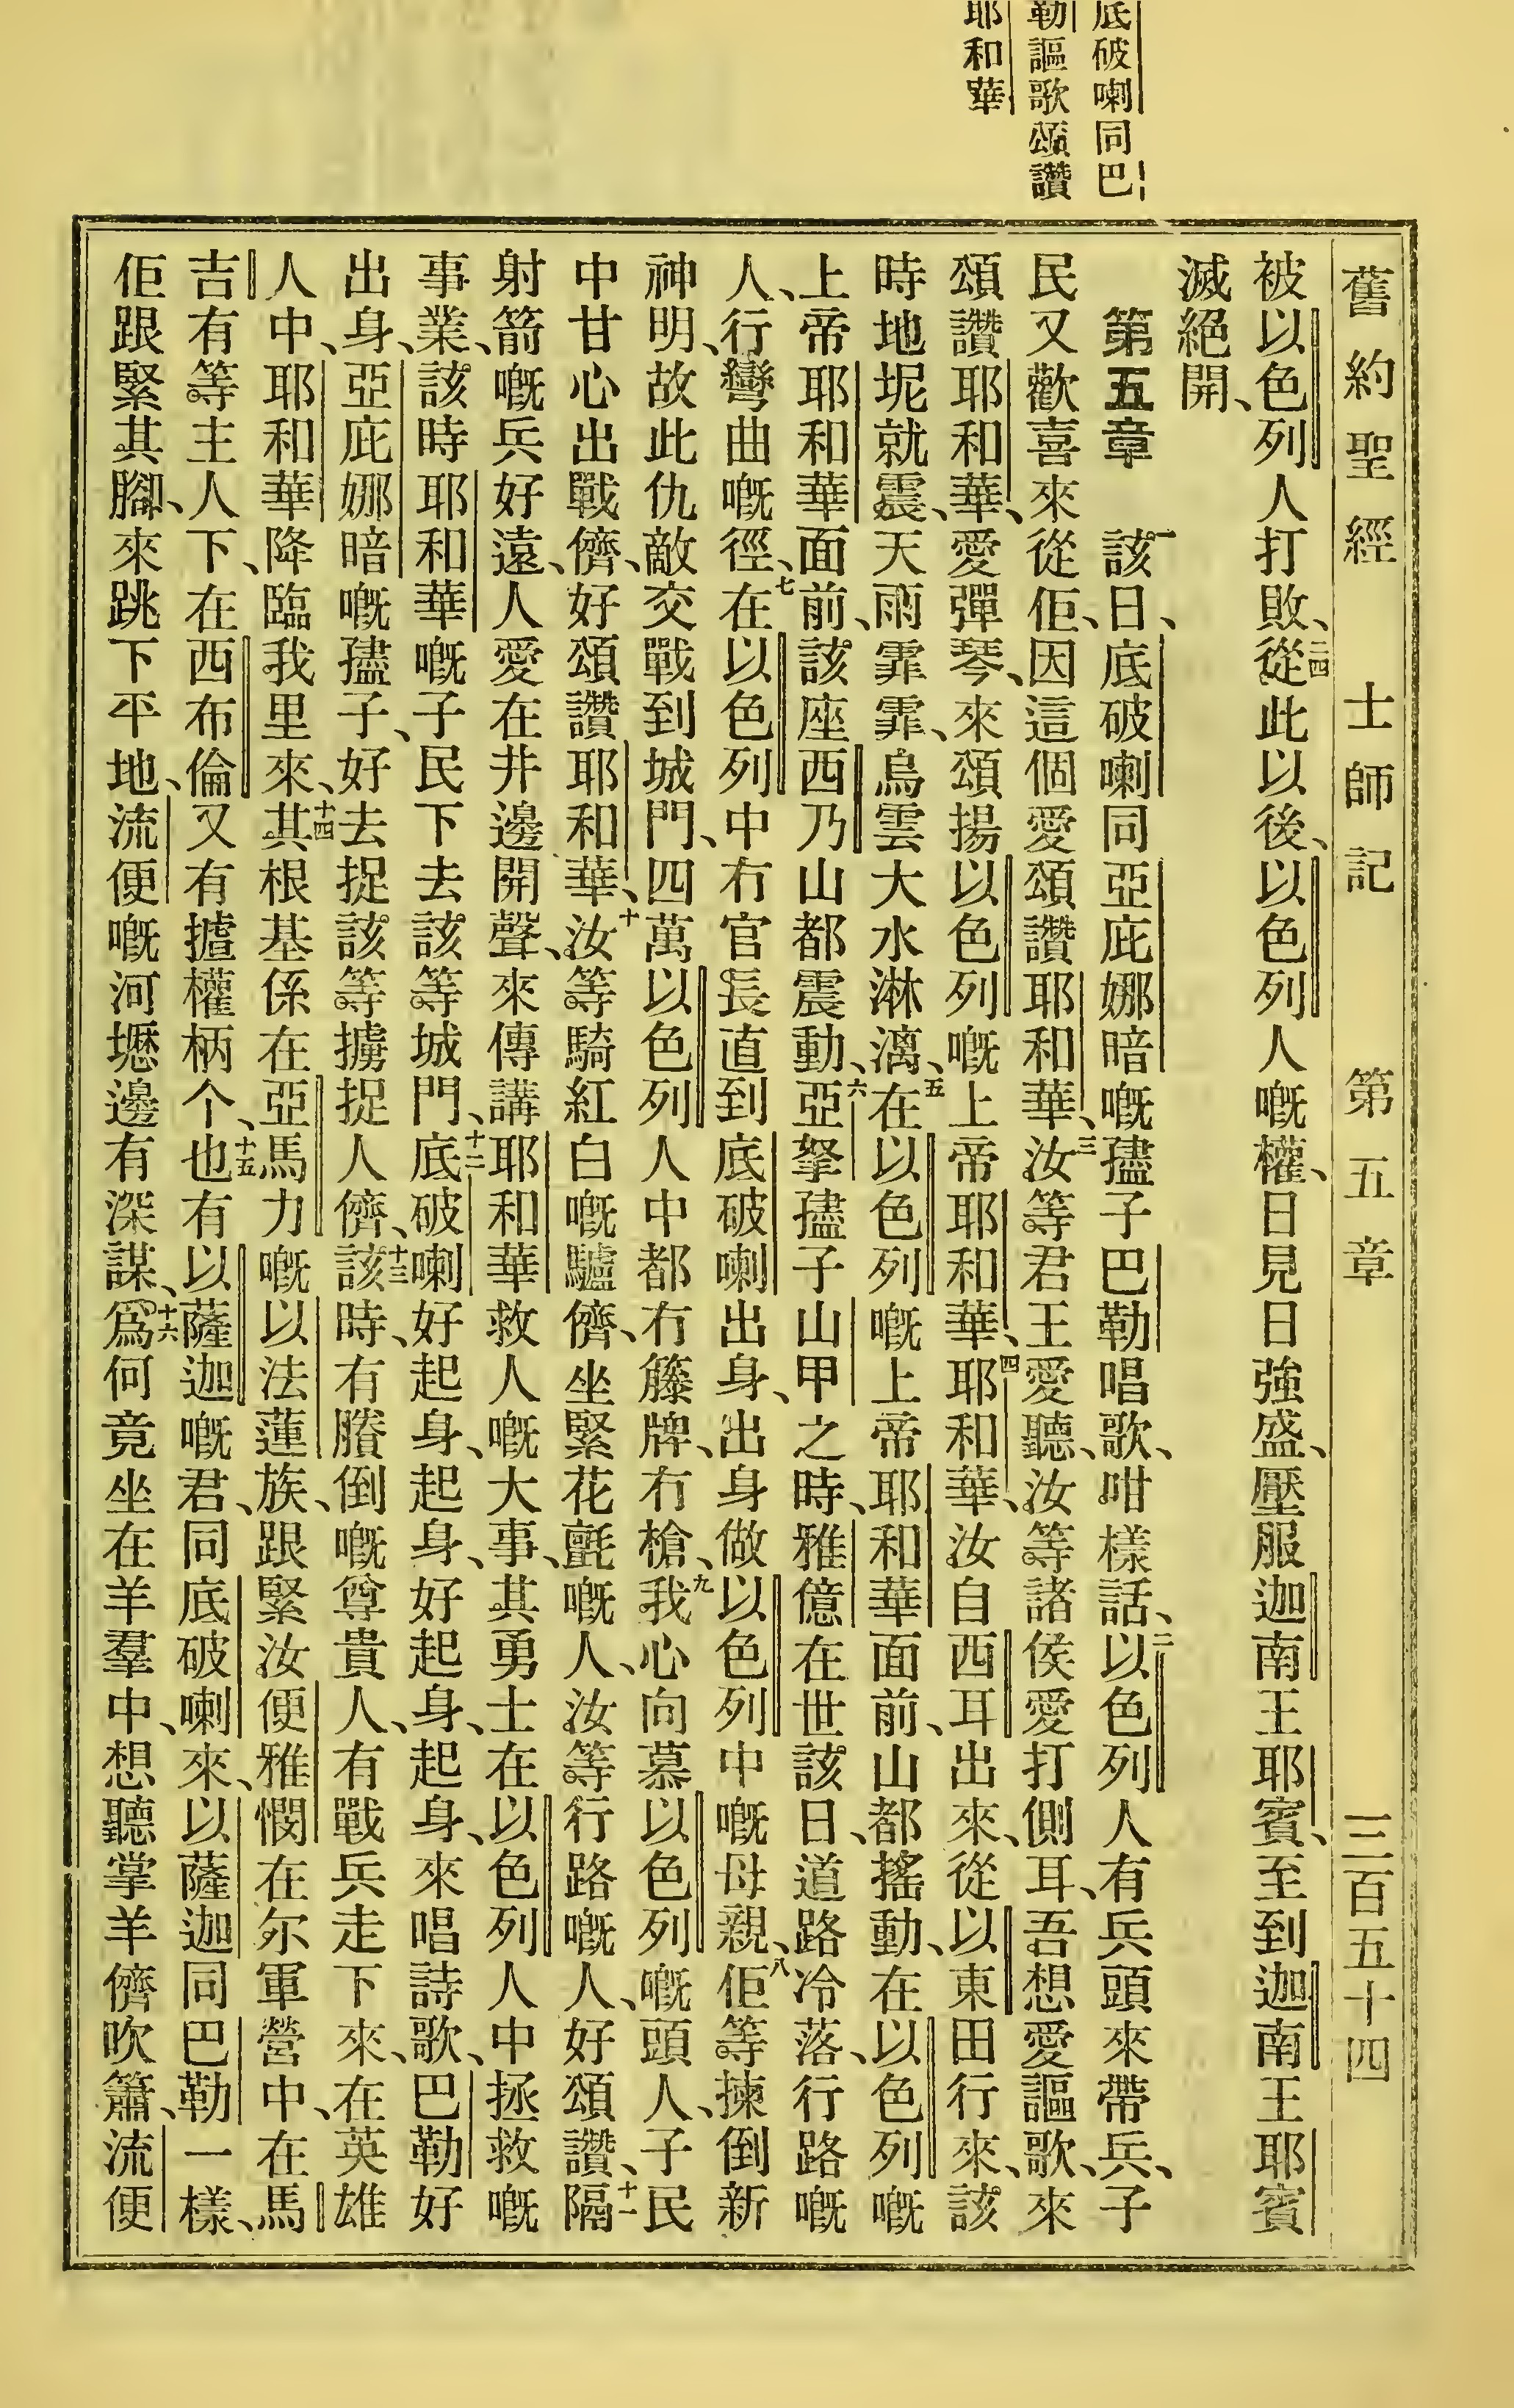 底破喇同巴
勒謳歌頌讚
耶和華
舊約聖經 士師記 第五章 三百五十四
被以色列人打敗、二四從此以後、以色列人嘅權、日見日強盛、壓服迦南王耶賓、至到迦南王耶賓
滅絕開、
第五章 一該日、底破喇同亞庇娜暗嘅𡥧子巴勒唱歌、咁樣話、二以色列人有兵頭來帶兵、子
民又歡喜來從佢、因這個愛頌讚耶和華、三汝等君王愛聽、汝等諸侯愛打側耳、吾想愛謳歌、來
頌讚耶和華、愛彈琴、來頌揚以色列嘅上帝耶和華、四耶和華、汝自西耳出來、從以東田行來、該
時地坭就震、天雨霏霏、烏雲大水淋漓、五在以色列嘅上帝耶和華面前、山都搖動、在以色列嘅
上帝耶和華面前、該座西乃山都震動、六亞拏𡥧子山甲之時、雅億在世該日、道路冷落、行路嘅
人、行彎曲嘅徑、七在以色列中冇官長直到底破喇出身、出身做以色列中嘅母親、八佢等揀倒新
神明、故此仇敵交戰到城門、四萬以色列人中都冇籐牌、冇槍、九我心向慕以色列嘅頭人、子民
中甘心出戰儕、好頌讚耶和華、十汝等騎紅白嘅驢儕、坐緊花氈嘅人、汝等行路嘅人、好頌讚、十一隔
射箭嘅兵好遠、人愛在井邊開聲、來傳講耶和華救人嘅大事、其勇士在以色列人中拯救嘅
事業、該時耶和華嘅子民下去該等城門、十二底破喇好起身、起身、好起身、起身、來唱詩歌、巴勒好
出身、亞庇娜暗嘅𡥧子、好去捉該等擄捉人儕、十三該時、有賸倒嘅尊貴人、有戰兵走下來、在英雄
人中、耶和華降臨我里來、十四其根基係在亞馬力嘅以法蓮族、跟緊汝便雅憫在尔軍營中、在馬
吉有等主人下、在西布倫又有摣權柄个、十五也有以薩迦嘅君、同底破喇來、以薩迦同巴勒一樣、
佢跟緊其腳、來跳下平地、流便嘅河壢邊有深謀、十六爲何竟坐在羊羣中、想聽掌羊儕吹簫、流便